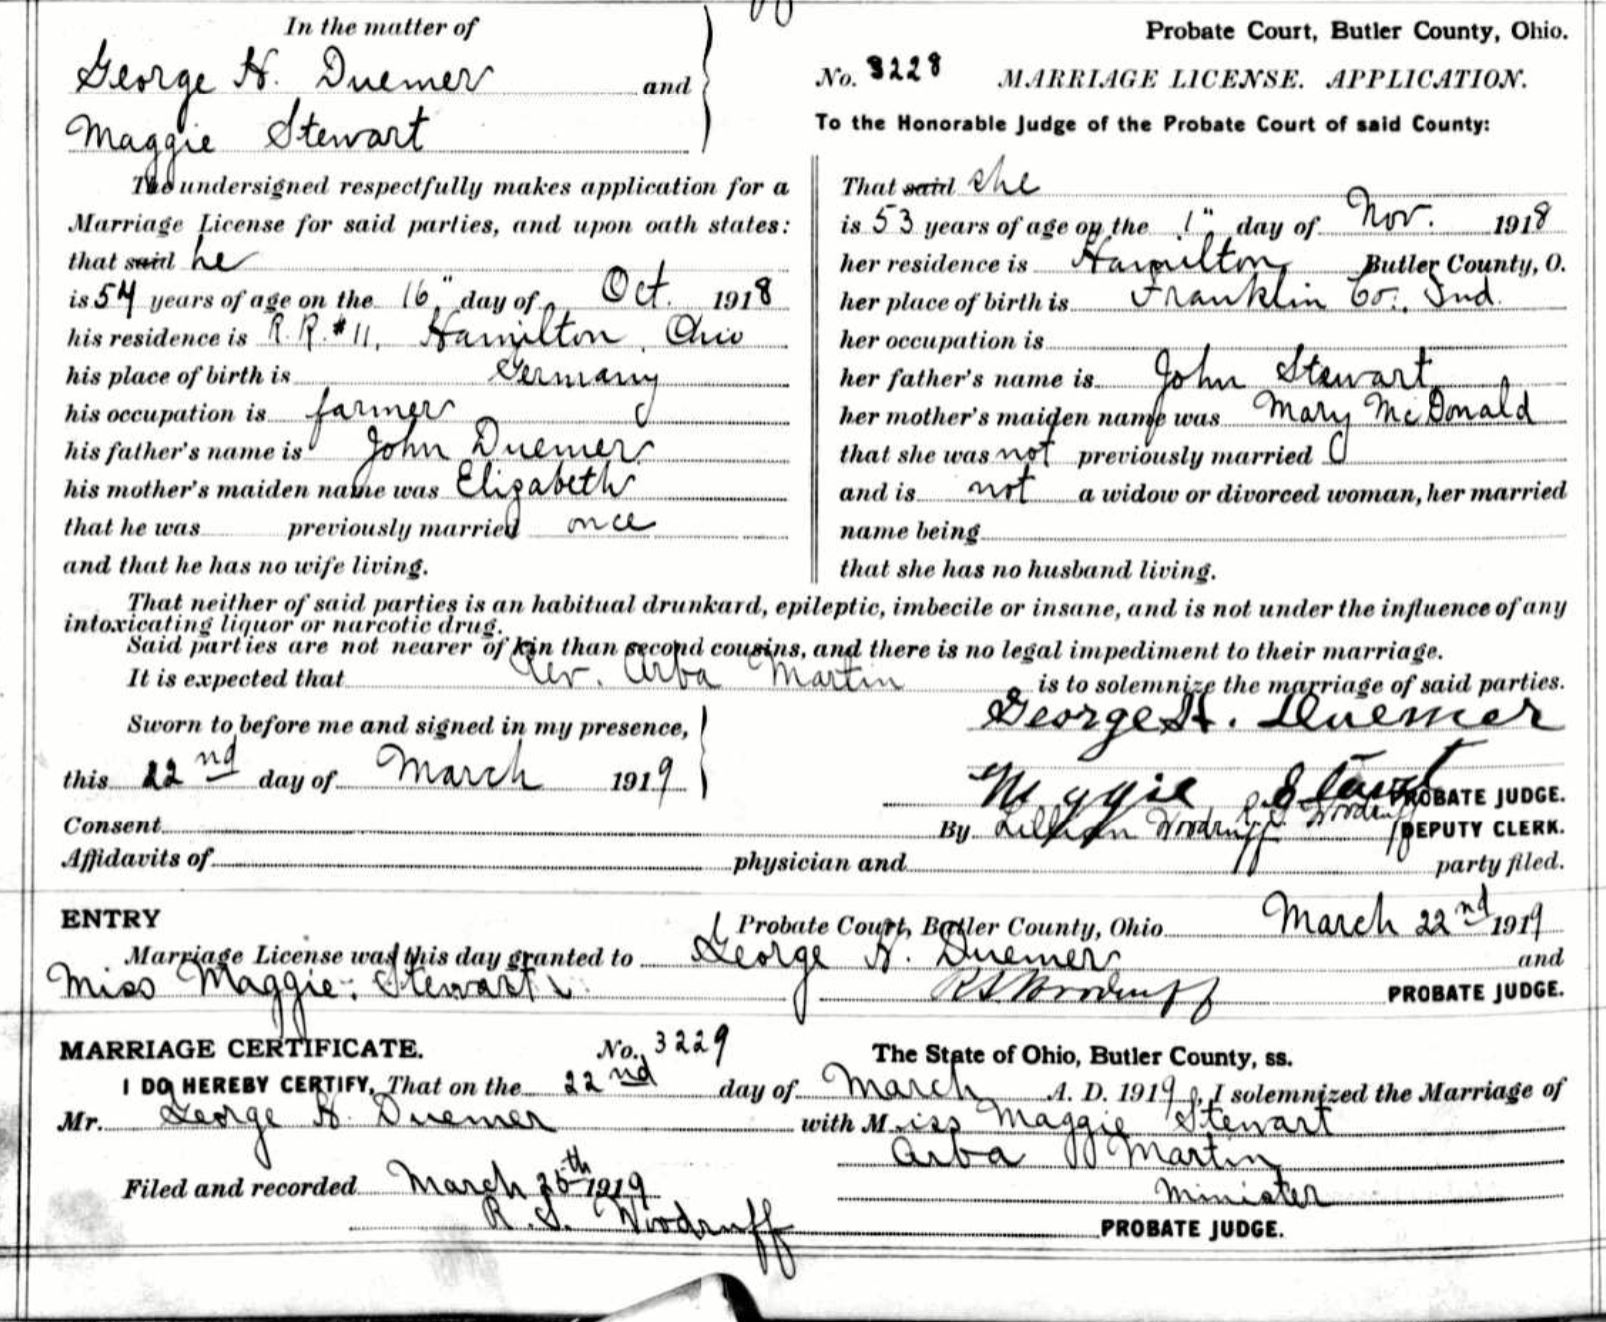 In the matter of
George H. Duemer and
Maggie Stewart
Probate Court, Butler County, Ohio.
No. 3228 MARRIAGE LICENSE. APPLICATION.
To the Honorable Judge of the Probate Court of said County:
The undersigned respectfully makes application for a
Marriage License for said parties, and upon oath states:
that said he
is 54 years of age on the 16" day of Oct. 1918
his residence is R.R. #11, Hamilton, Ohio
his place of birth is Germany
his occupation is farmer
his father's name is John Duemer
his mother's maiden name was Elizabeth
that he was previously married once
and that he has no wife living.
That said she
is 53 years of age on the 1" day of Nov. 1918
her residence is Hamilton, Butler County, O.
her place of birth is Franklin Co., Ind.
her occupation is
her father's name is John Stewart
her mother's maiden name was Mary McDonald
that she was not previously married
and is not a widow or divorced woman, her married
name being
that she has no husband living.
That neither of said parties is an habitual drunkard, epileptic, imbecile or insane, and is not under the influence of any
intoxicating liquor or narcotic drug.
Said parties are not nearer of kin than second cousins, and there is no legal impediment to their marriage.
It is expected that Rev. Arba Martin is to solemnize the marriage of said parties.
George H. Duemer
Sworn to before me and signed in my presence,
this 22nd day of March 1919
Maggie Stewart
PROBATE JUDGE.
Consent By Lillian Woodruff DEPUTY CLERK.
Affidavits of physician and party filed.
ENTRY Probate Court, Butler County, Ohio March 22nd 1919
Marriage License was this day granted to George H. Duemer and
Miss Maggie Stewart R.S. Woodruff PROBATE JUDGE.
MARRIAGE CERTIFICATE. No. 3229 The State of Ohio, Butler County, ss.
I DO HEREBY CERTIFY, That on the 22nd day of March A. D. 1919, I solemnized the Marriage of
Mr. George H Duemer with Miss Maggie Stewart
Arba Martin
Filed and recorded March 25th 1919 Minister
R. S. Woodruff PROBATE JUDGE.